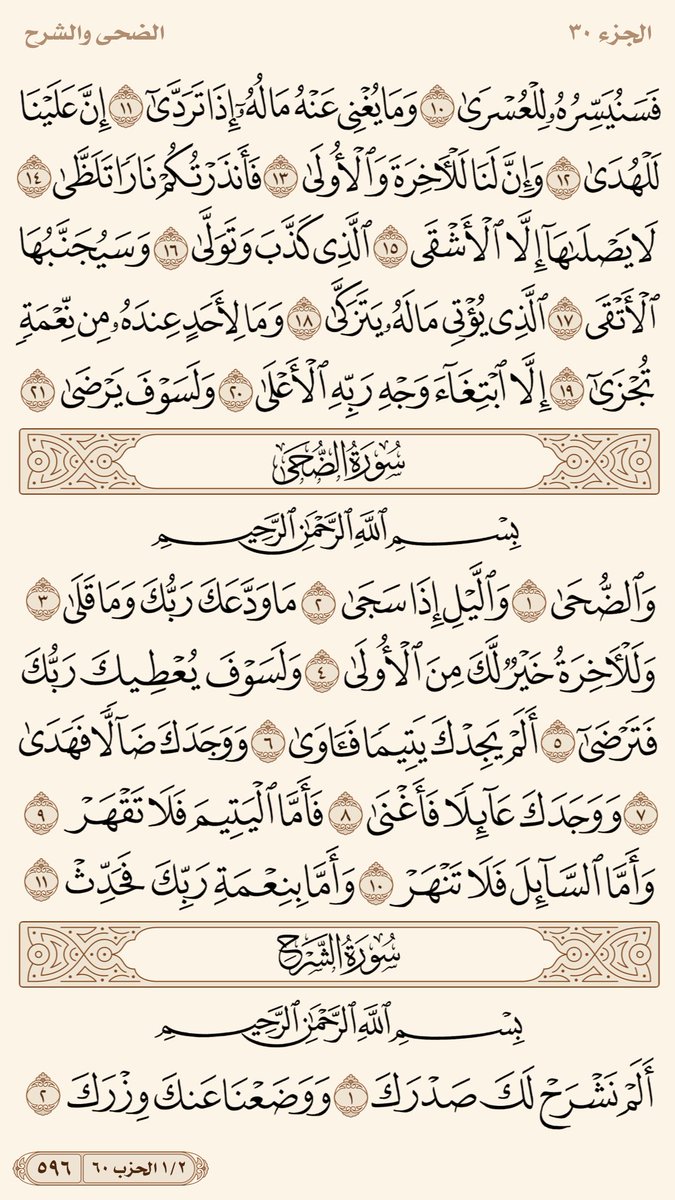 الجزء ٣٠ الضحى والشرح
فَسَنُيَسِّرُهُۥ لِلۡعُسۡرَىٰ ١٠ وَمَا يُغۡنِي عَنۡهُ مَالُهُۥٓ إِذَا تَرَدَّىٰٓ ١١ إِنَّ عَلَيۡنَا
لَلۡهُدَىٰ ١٢ وَإِنَّ لَنَا لَلۡأٓخِرَةَ وَٱلۡأُولَىٰ ١٣ فَأَنذَرۡتُكُمۡ نَارٗا تَلَظَّىٰ ١٤
لَا يَصۡلَىٰهَآ إِلَّا ٱلۡأَشۡقَى ١٥ ٱلَّذِي كَذَّبَ وَتَوَلَّىٰ ١٦ وَسَيُجَنَّبُهَا
ٱلۡأَتۡقَى ١٧ ٱلَّذِي يُؤۡتِي مَالَهُۥ يَتَزَكَّىٰ ١٨ وَمَا لِأَحَدٍ عِندَهُۥ مِن نِّعۡمَةٖ
تُجۡزَىٰٓ ١٩ إِلَّا ٱبۡتِغَآءَ وَجۡهِ رَبِّهِ ٱلۡأَعۡلَىٰ ٢٠ وَلَسَوۡفَ يَرۡضَىٰ ٢١
سُورَةُ الضُّحَىٰ
بِسۡمِ ٱللَّهِ ٱلرَّحۡمَٰنِ ٱلرَّحِيمِ
وَٱلضُّحَىٰ ١ وَٱلَّيۡلِ إِذَا سَجَىٰ ٢ مَا وَدَّعَكَ رَبُّكَ وَمَا قَلَىٰ ٣
وَلَلۡأٓخِرَةُ خَيۡرٞ لَّكَ مِنَ ٱلۡأُولَىٰ ٤ وَلَسَوۡفَ يُعۡطِيكَ رَبُّكَ
فَتَرۡضَىٰٓ ٥ أَلَمۡ يَجِدۡكَ يَتِيمٗا فَـَٔاوَىٰ ٦ وَوَجَدَكَ ضَآلّٗا فَهَدَىٰ
٧ وَوَجَدَكَ عَآئِلٗا فَأَغۡنَىٰ ٨ فَأَمَّا ٱلۡيَتِيمَ فَلَا تَقۡهَرۡ ٩
وَأَمَّا ٱلسَّآئِلَ فَلَا تَنۡهَرۡ ١٠ وَأَمَّا بِنِعۡمَةِ رَبِّكَ فَحَدِّثۡ ١١
سُورَةُ الشَّرۡحِ
بِسۡمِ ٱللَّهِ ٱلرَّحۡمَٰنِ ٱلرَّحِيمِ
أَلَمۡ نَشۡرَحۡ لَكَ صَدۡرَكَ ١ وَوَضَعۡنَا عَنكَ وِزۡرَكَ ٢
١/٢ الحزب ٦٠ ٥٩٦